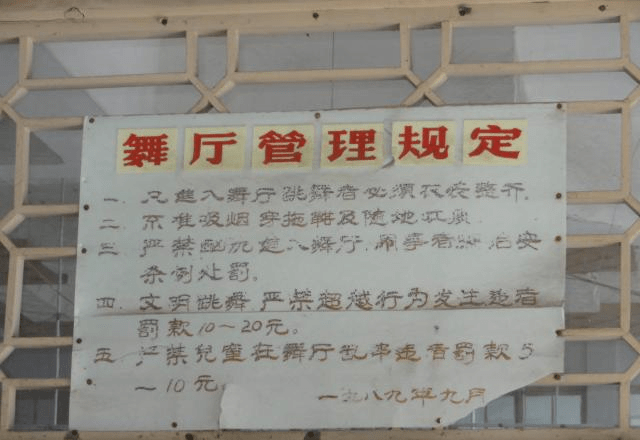 舞厅管理规定
一 凡进入舞厅跳舞者必须衣装整齐.
二. 不准吸烟 穿拖鞋及随地
三. 严禁酗酒进入舞厅,闹事者 治安
条例处罚。
四. 文明跳舞 严禁超越行为发生违者
罚款10～20元。
五 严禁兒童在舞厅 违者罚款5
～10元
一九八九年九月